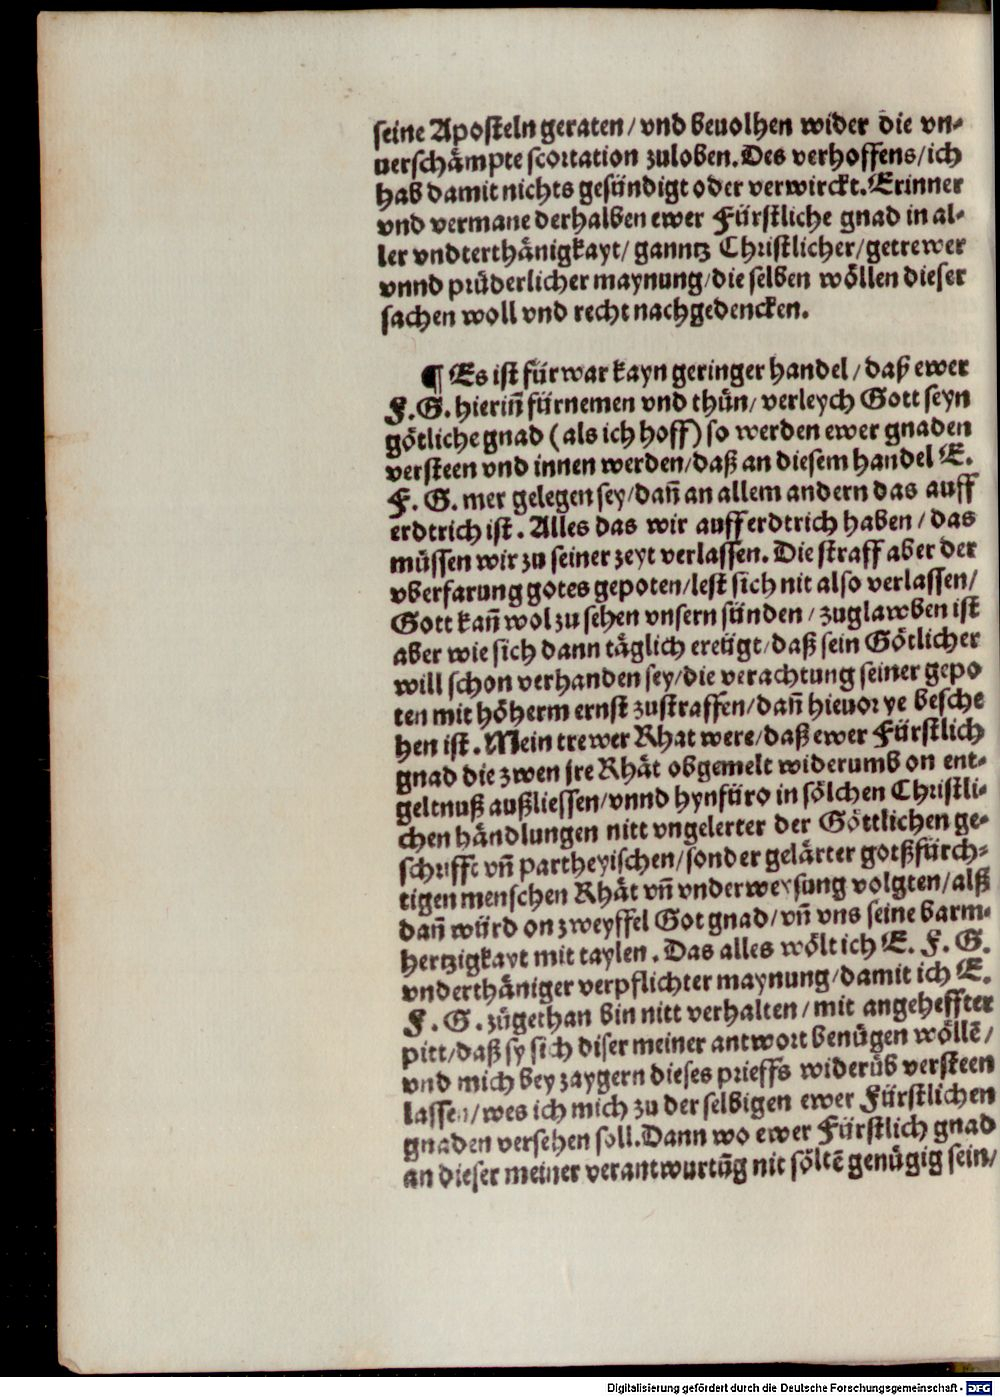 seine Aposteln geraten/ vnd beuolhen wider die vn-
uerschämpte scortation zuloben. Des verhoffens/ich
hab damit nichts gesündigt oder verwirckt. Erinner
vnd vermane derhalben ewer Fürstliche gnad in al-
ler vndterthänigkayt/ ganntz Christlicher/getrewer
vnnd prüderlicher maynung/die selben wöllen dieser
sachen woll vnd recht nachgedencken.
¶ Es ist fürwar kayn geringer handel/ daß ewer
F. G. hieriñ fürnemen vnd thün/ verleych Gott seyn
götliche gnad (als ich hoff) so werden ewer gnaden
versteen vnd innen werden/daß an diesem handel E.
F. G. mer gelegen sey/dañ an allem andern das auff
erdtrich ist. Alles das wir auff erdtrich haben/ das
müssen wir zu seiner zeyt verlassen. Die straff aber der
vberfarung gotes gepoten/lest sich nit also verlassen/
Gott kañ wol zu sehen vnsern sünden/ zuglawben ist
aber wie sich dann täglich ereügt/daß sein Götlicher
will schon verhanden sey/die verachtung seiner gepo
ten mit höherm ernst zustraffen/dañ hieuor ye besche
hen ist. Mein trewer Rhat were/daß ewer Fürstlich
gnad die zwen jre Rhät obgemelt widerumb on ent-
geltnuß außliessen/vnnd hynfüro in sölchen Christli-
chen händlungen nitt vngelerter der Göttlichen ge-
schrifft vñ partheyischen/sonder gelärter gotßfürch-
tigen menschen Rhät vñ vnderweysung volgten/alß
dañ würd on zweyffel Got gnad/ vñ vns seine barm-
hertzigkayt mit taylen. Das alles wölt ich E. F. G.
vnderthäniger verpflichter maynung/damit ich E.
F. G. zügethan bin nitt verhalten/ mit angeheffter
pitt/daß sy sich diser meiner antwort benügen wöllē/
vnd mich bey zaygern dieses prieffs widerüb versteen
lassen/wes ich mich zu der selbigen ewer Fürstlichen
gnaden versehen soll. Dann wo ewer Fürstlich gnad
an dieser meiner verantwurtũg nit söltē genügig sein/
Digitalisierung gefördert durch die Deutsche Forschungsgemeinschaft - DFG